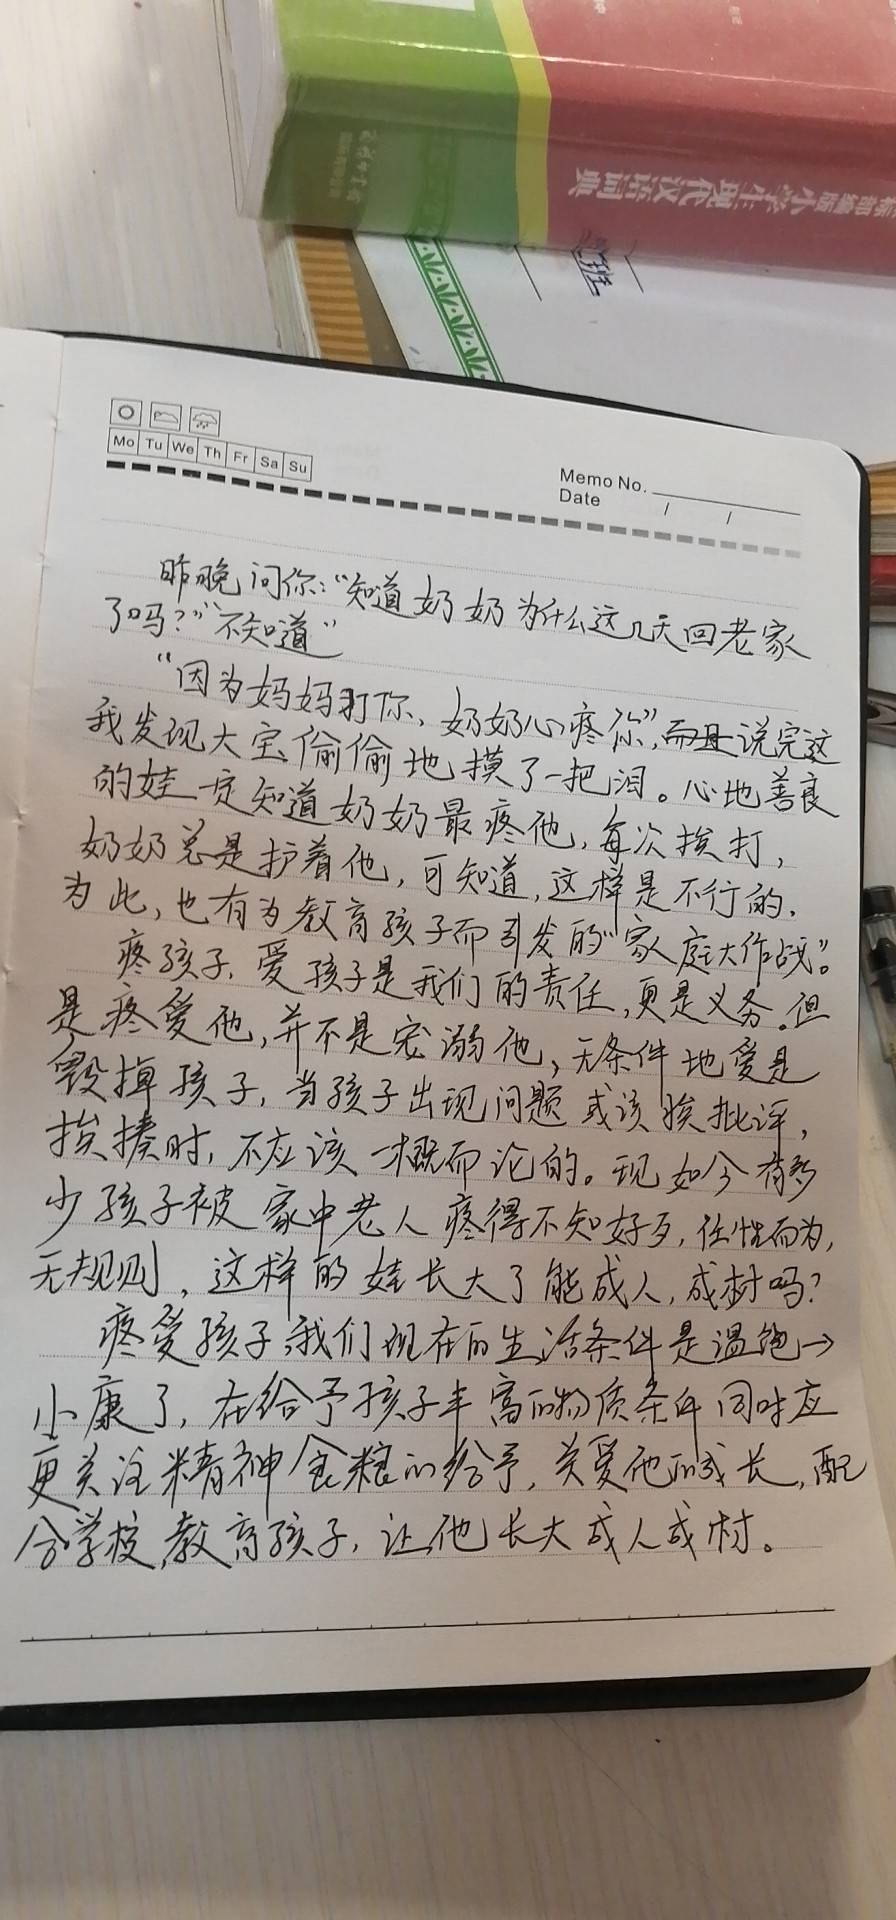 标部编版小学生现代汉语词典
班
Mo Tu We Th Fr Sa Su
Memo No.
Date / /
昨晚问你:“知道奶奶为什么这几天回老家
了吗?”“不知道”
“因为妈妈打你,奶奶心疼你”,而且说完这
我发现大宝偷偷地摸了一把泪。心地善良
的娃一定知道奶奶最疼他,每次挨打,
奶奶总是护着他,可知道,这样是不行的.
为此,也有为教育孩子而引发的“家庭大作战”。
疼孩子,爱孩子是我们的责任,更是义务。但
是疼爱他,并不是宠溺他,无条件地爱是
毁掉孩子,当孩子出现问题或该挨批评,
挨揍时,不应该一概而论的。现如今有多
少孩子被家中老人疼得不知好歹,任性而为,
无规则,这样的娃长大了能成人,成材吗?
疼爱孩子,我们现在的生活条件是温饱→
小康了,在给予孩子丰富的物质条件同时应
更关注精神食粮的给予,关爱他的成长,配
合学校,教育孩子,让他长大成人成材。